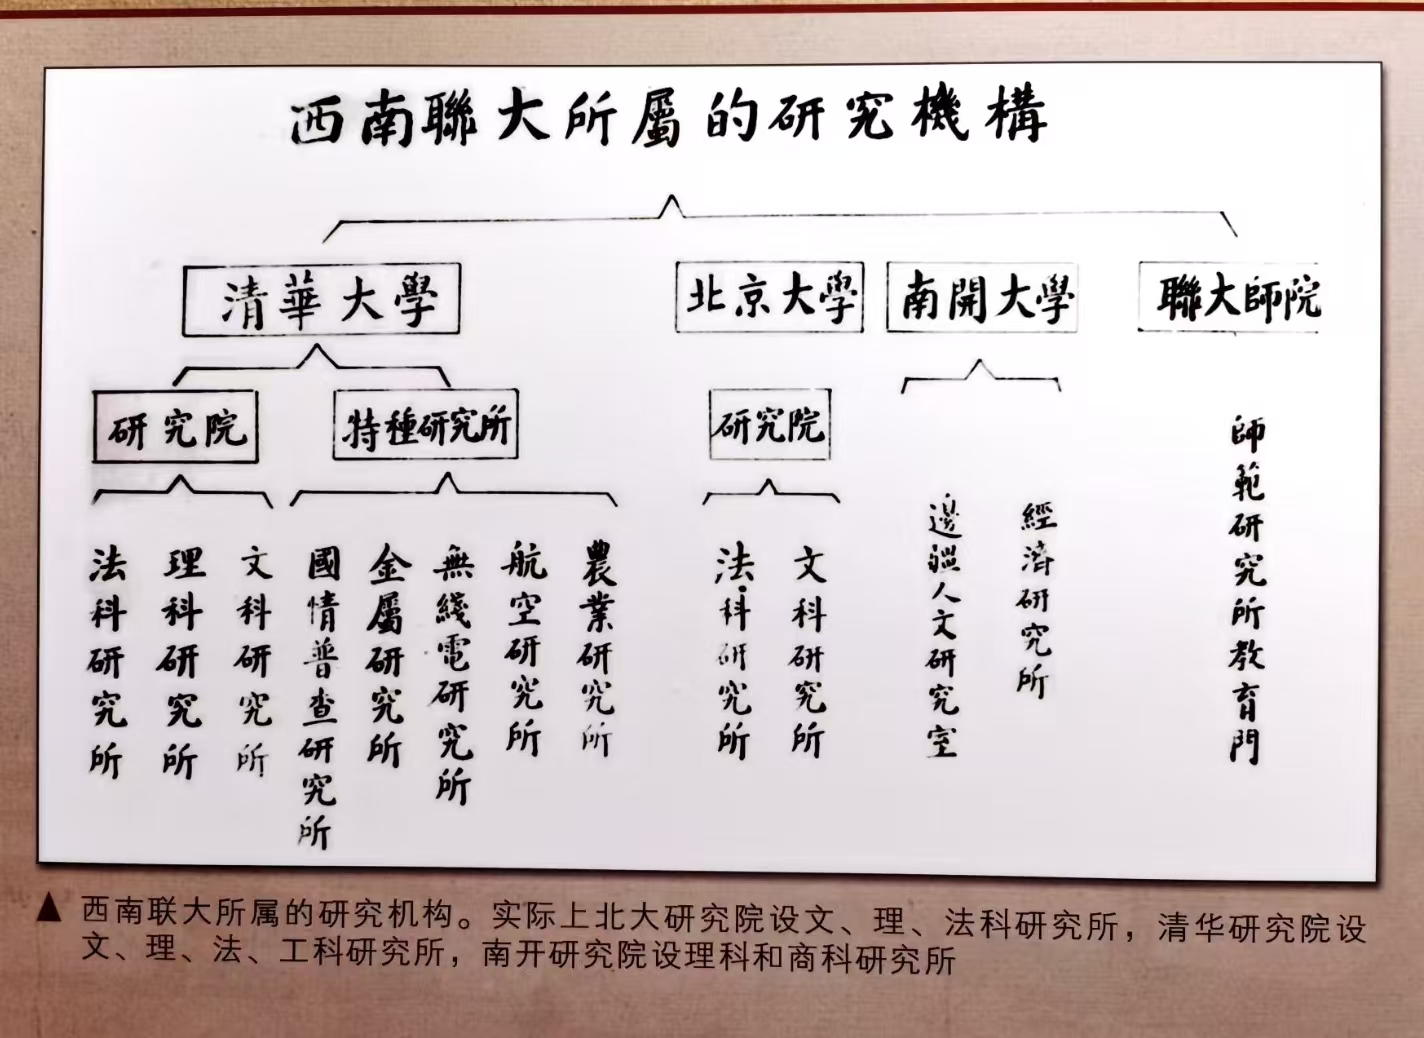 西南聯大所屬的研究機構
清華大學
北京大學
南開大學
聯大師院
研究院
特種研究所
研究院
法科研究所
理科研究所
文科研究所
國情普查研究所
金屬研究所
無綫電研究所
航空研究所
農業研究所
法科研究所
文科研究所
邊疆人文研究室
經濟研究所
師範研究所教育門
▲ 西南联大所属的研究机构。实际上北大研究院设文、理、法科研究所，清华研究院设
文、理、法、工科研究所，南开研究院设理科和商科研究所